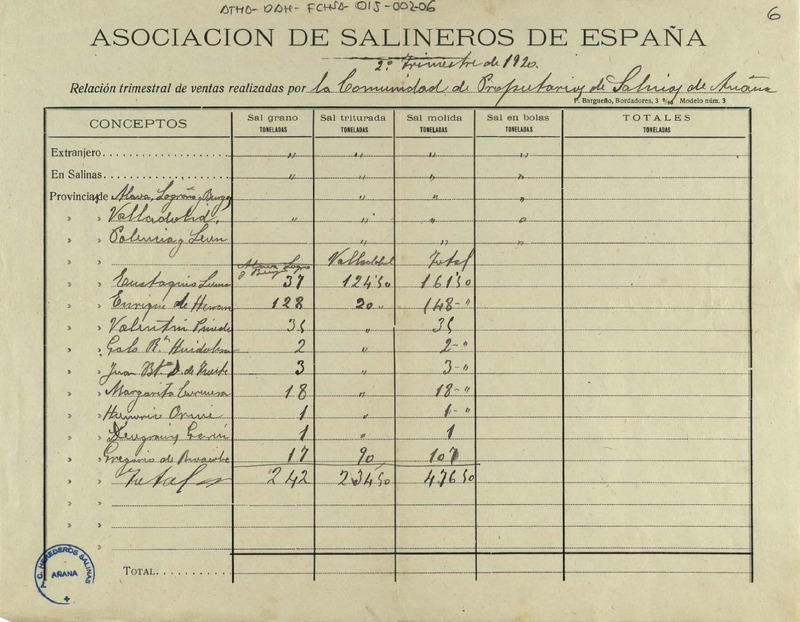 ATHA-DAH-FCHSA-015-002-06
6
ASOCIACION DE SALINEROS DE ESPAÑA
2º trimestre de 1920.
Relación trimestral de ventas realizadas por la Comunidad de Propietarios de Salinas de Añana
P. Bargueño, Bordadores, 3 Modelo núm. 3
CONCEPTOS Sal grano TONELADAS Sal triturada TONELADAS Sal molida TONELADAS Sal en bolas TONELADAS TOTALES TONELADAS
Extranjero " " " "
En Salinas " " " "
Provincias de Alava, Logroño, Burgos " " "
» » Valladolid, " " " "
» » Palencia y Leon " " "
» » Alava Logro y Burg Valladolid Total
» » Eustaquio 37 124'50 161'50
» » Enrique de 128 20 " 148 - "
» » Valentin Pinedo 35 " 35
» » Galo Rz Huidobro 2 " 2 - "
» » Juan Bta de 3 " 3 - "
» » Margarita 18 " 18 - "
» » 1 " 1 - "
» » 1 " 1
» » Gregorio de 17 90 107
» » Total 242 234 50 476 50
» »
» »
» »
TOTAL
C. HEREDEROS SALINAS
AÑANA